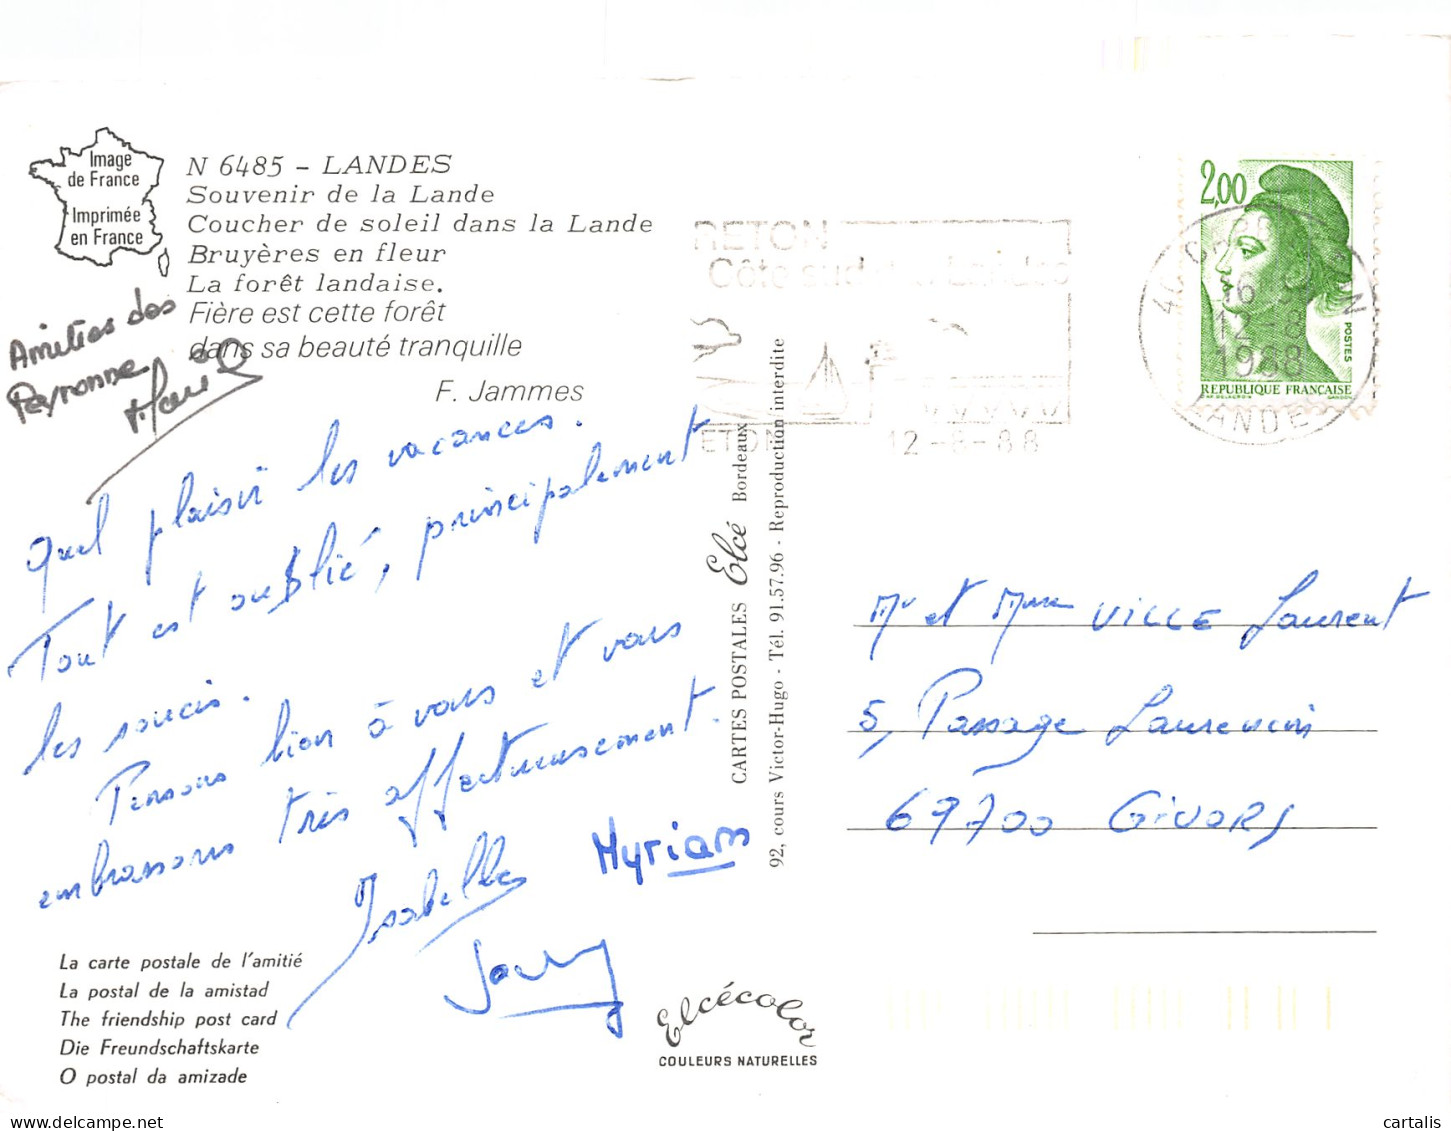 Image
de France
Imprimée
en France
N 6485 - LANDES
Souvenir de la Lande
Coucher de soleil dans la Lande
Bruyères en fleur
La forêt landaise.
Fière est cette forêt
dans sa beauté tranquille
F. Jammes
Amitiés des
Peyronne
Quel plaisir les vacances.
Tout est oublié, principalement
les soucis.
Pensons bien à vous et vous
embrassons très affectueusement.
Isabelle
Myriam
La carte postale de l'amitié
La postal de la amistad
The friendship post card
Die Freundschaftskarte
O postal da amizade
Elcécolor
COULEURS NATURELLES
CARTES POSTALES Elcé Bordeaux
92, cours Victor-Hugo - Tél. 91.57.96 - Reproduction interdite
RETON
Côte sud des Landes
ETON 12-8-88
2,00
POSTES
REPUBLIQUE FRANÇAISE
40
12-8
1988
Mr et Mme VILLE Laurent
5, Passage Laurencin
69700 GIVORS
cartalis